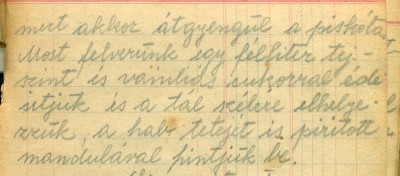 mert akkor átgyengül a piskóta
Most felverünk egy félliter tej-
szint és vaniliás cukorral éde
sitjük és a tál szélére elhelye-
zzük, a hab tetejét is piritott
mandulával hintjük be.